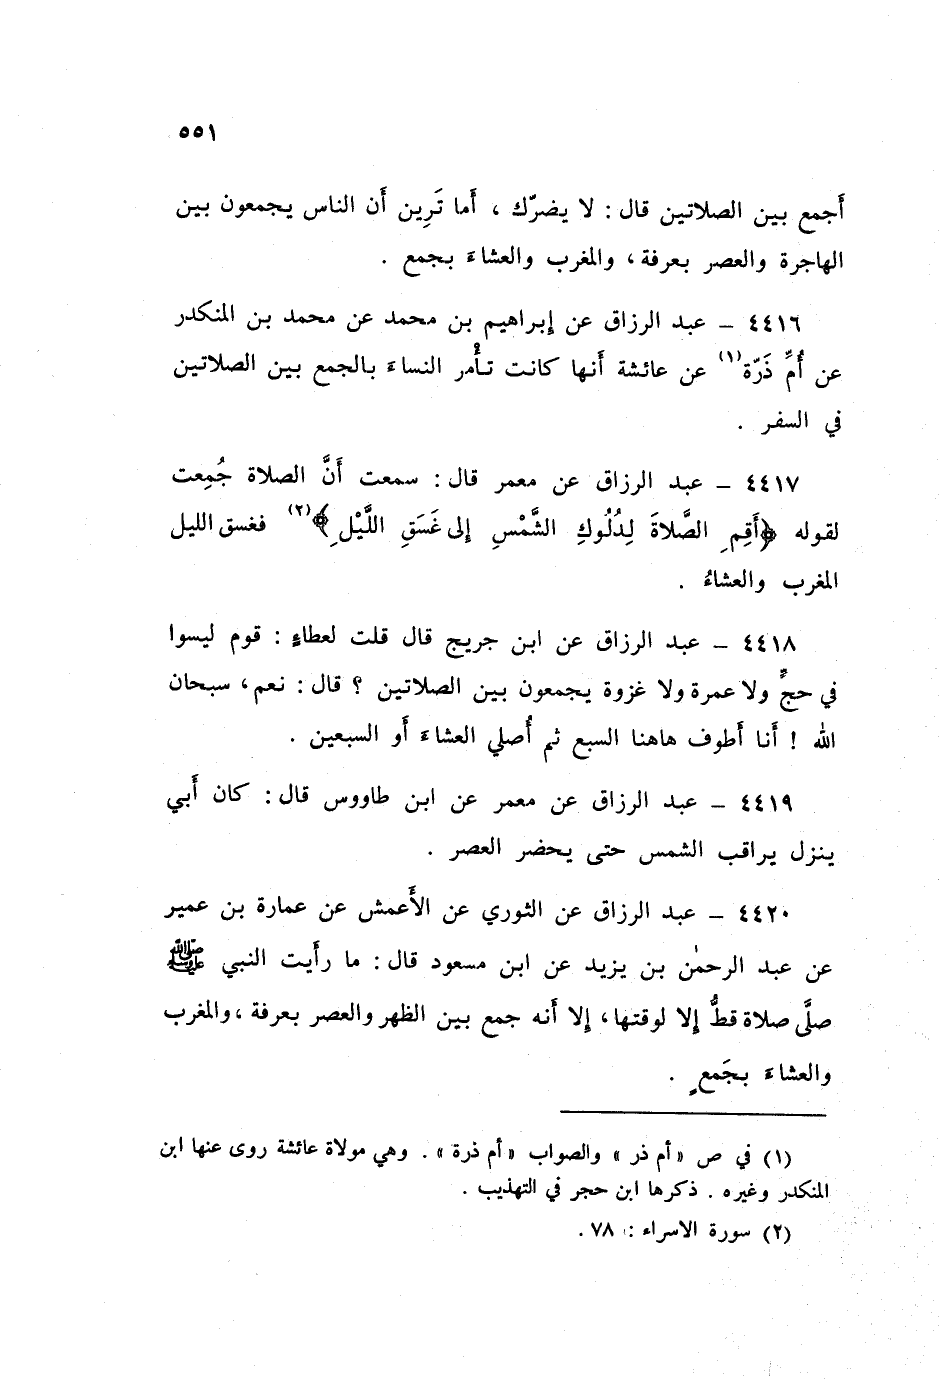 ٥٥١
أَجمع بين الصلاتين قال : لا يضرّك ، أَما تَرِين أَن الناس يجمعون بين
الهاجرة والعصر بعرفة ، والمغرب والعشاءَ بجمع .
٤٤١٦ – عبد الرزاق عن إبراهيم بن محمد عن محمد بن المنكدر
عن أُمِّ ذَرّة (١) عن عائشة أَنها كانت تأْمر النساءَ بالجمع بين الصلاتين
في السفر .
٤٤١٧ – عبد الرزاق عن معمر قال : سمعت أَنَّ الصلاة جُمِعت
لقوله ﴿أَقِمِ الصَّلاةَ لِدُلُوكِ الشَّمْسِ إِلى غَسَقِ اللَّيْلِ﴾ (٢) فغسق الليل
المغرب والعشاءُ .
٤٤١٨ – عبد الرزاق عن ابن جريج قال قلت لعطاءٍ : قوم ليسوا
في حجٍّ ولا عمرة ولا غزوة يجمعون بين الصلاتين ؟ قال : نعم ، سبحان
الله ! أَنا أَطوف هاهنا السبع ثم أُصلي العشاءَ أَو السبعين .
٤٤١٩ – عبد الرزاق عن معمر عن ابن طاووس قال : كان أَبي
ينزل يراقب الشمس حتى يحضر العصر .
٤٤٢٠ – عبد الرزاق عن الثوري عن الأَعمش عن عمارة بن عمير
عن عبد الرحمٰن بن يزيد عن ابن مسعود قال : ما رأَيت النبي ﷺ
صلَّى صلاة قطُّ إِلا لوقتها ، إِلا أَنه جمع بين الظهر والعصر بعرفة ، والمغرب
والعشاءَ بجَمعٍ .
(١) في ص «أم ذر» والصواب «أم ذرة» . وهي مولاة عائشة روى عنها ابن
المنكدر وغيره . ذكرها ابن حجر في التهذيب .
(٢) سورة الاسراء : ٧٨ .